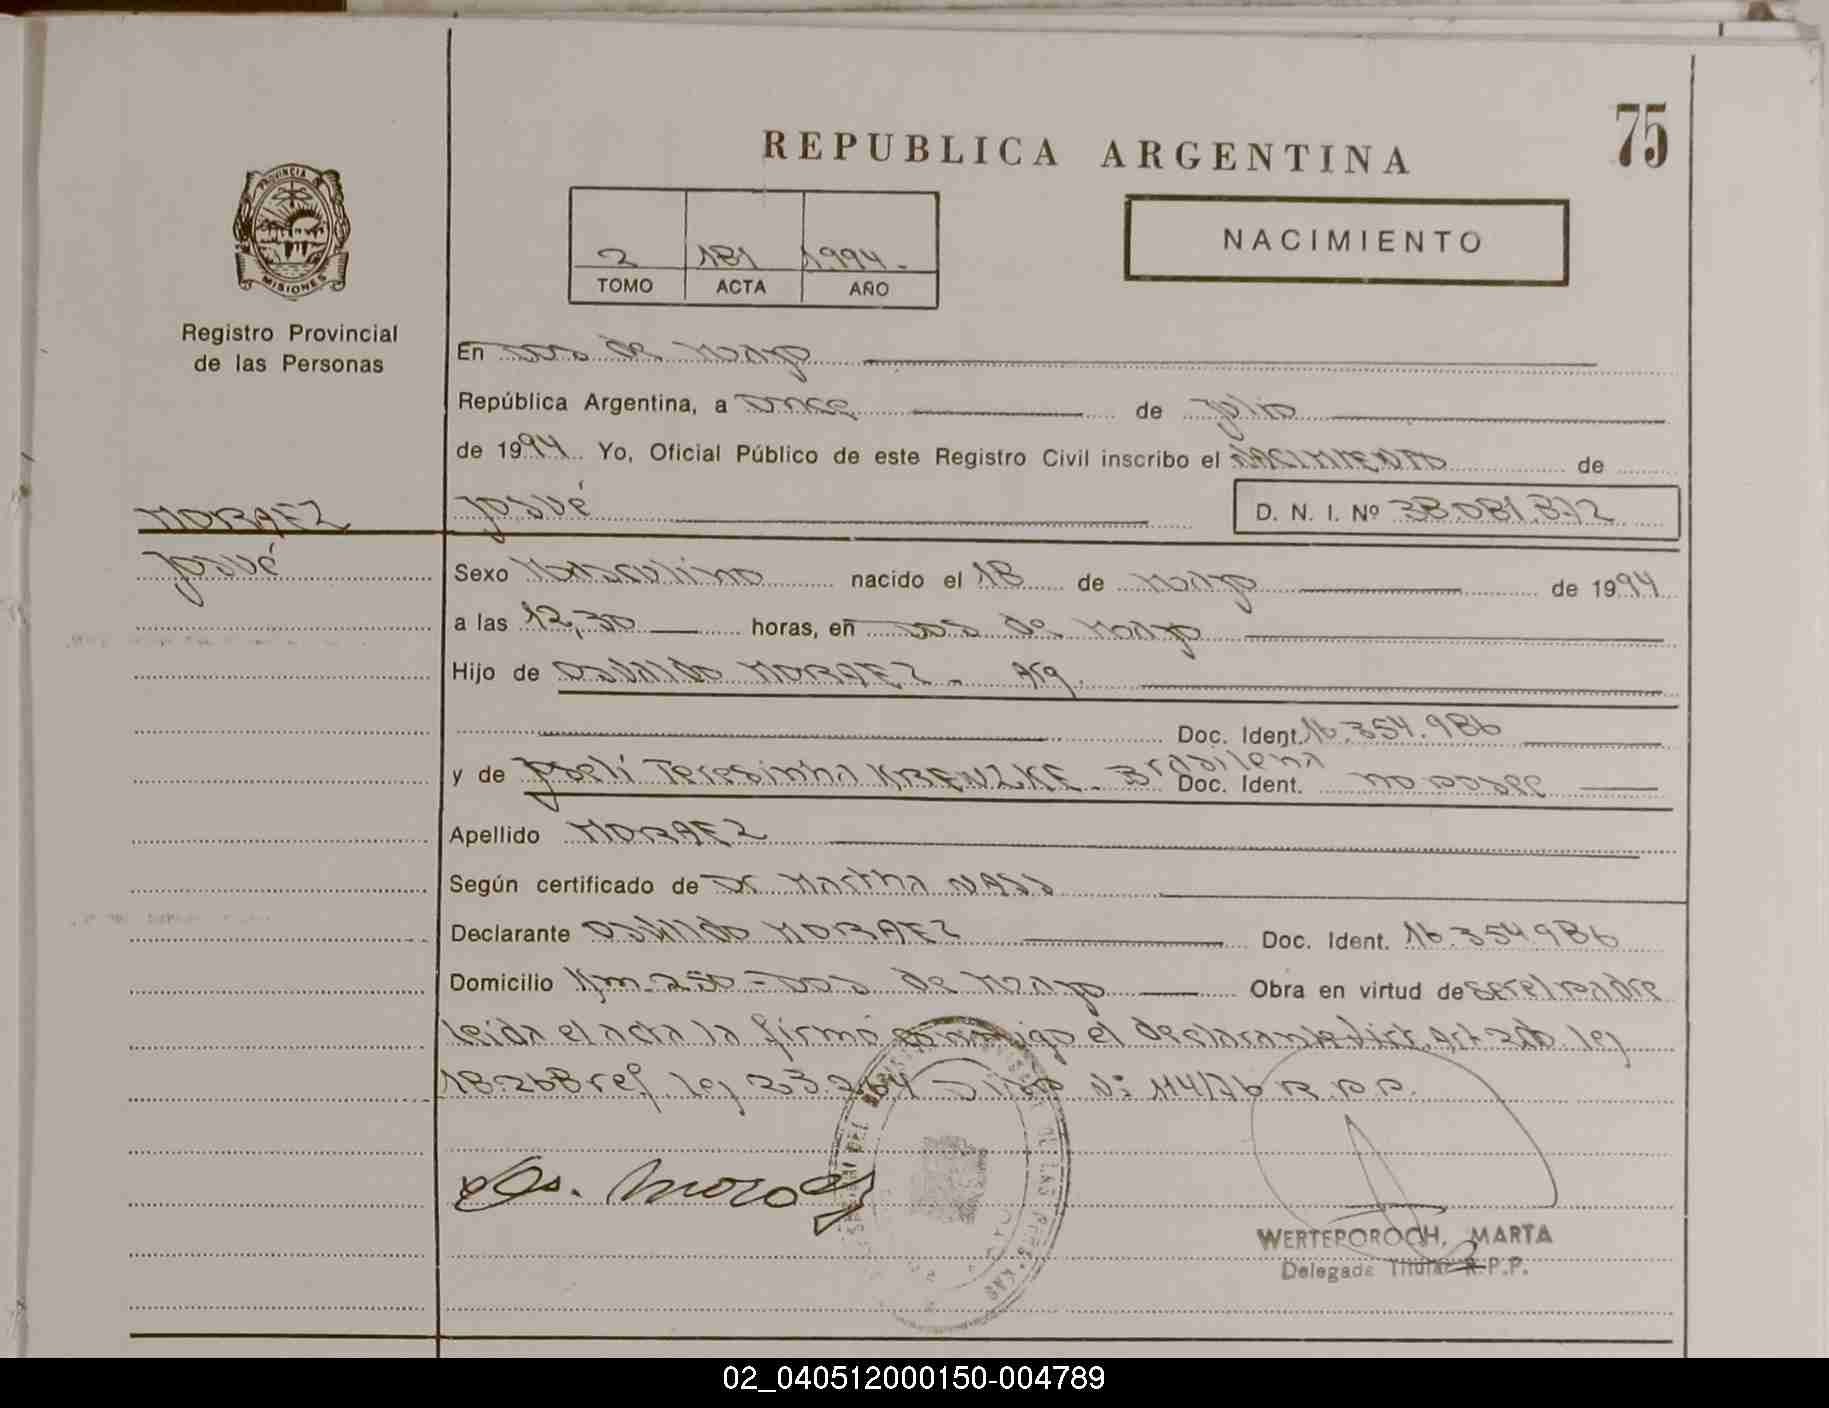 75
REPUBLICA ARGENTINA
NACIMIENTO
PROVINCIA DE
MISIONES
Registro Provincial
de las Personas
2 181 1994.
TOMO ACTA AÑO
En Dos de Mayo
República Argentina, a once de julio
de 1994 Yo, Oficial Público de este Registro Civil inscribo el NACIMIENTO de
MORAEZ
Josué
Josué D. N. I. Nº 38.081.812
Sexo Masculino nacido el 18 de Mayo de 1994
a las 12,30 horas, en Dos de Mayo
Hijo de Osvaldo MORAEZ - Arg.
Doc. Ident. 16.354.986
y de Joseli Teresinha KRENZKE - Brasileña Doc. Ident. no posee
Apellido MORAEZ
Según certificado de Dr Martha NASS
Declarante Osvaldo MORAEZ Doc. Ident. 16.354.986
Domicilio Km. 250 - Dos de Mayo Obra en virtud de ser el padre
Leida el acta la firma conmigo el declarante Art 2do ley
18.268 ref. ley 23.264 Nº 114/76 R.P.P.
Os. Moraez
WERTEPOROCH, MARTA
Delegada Titular R.P.P.
02_040512000150-004789